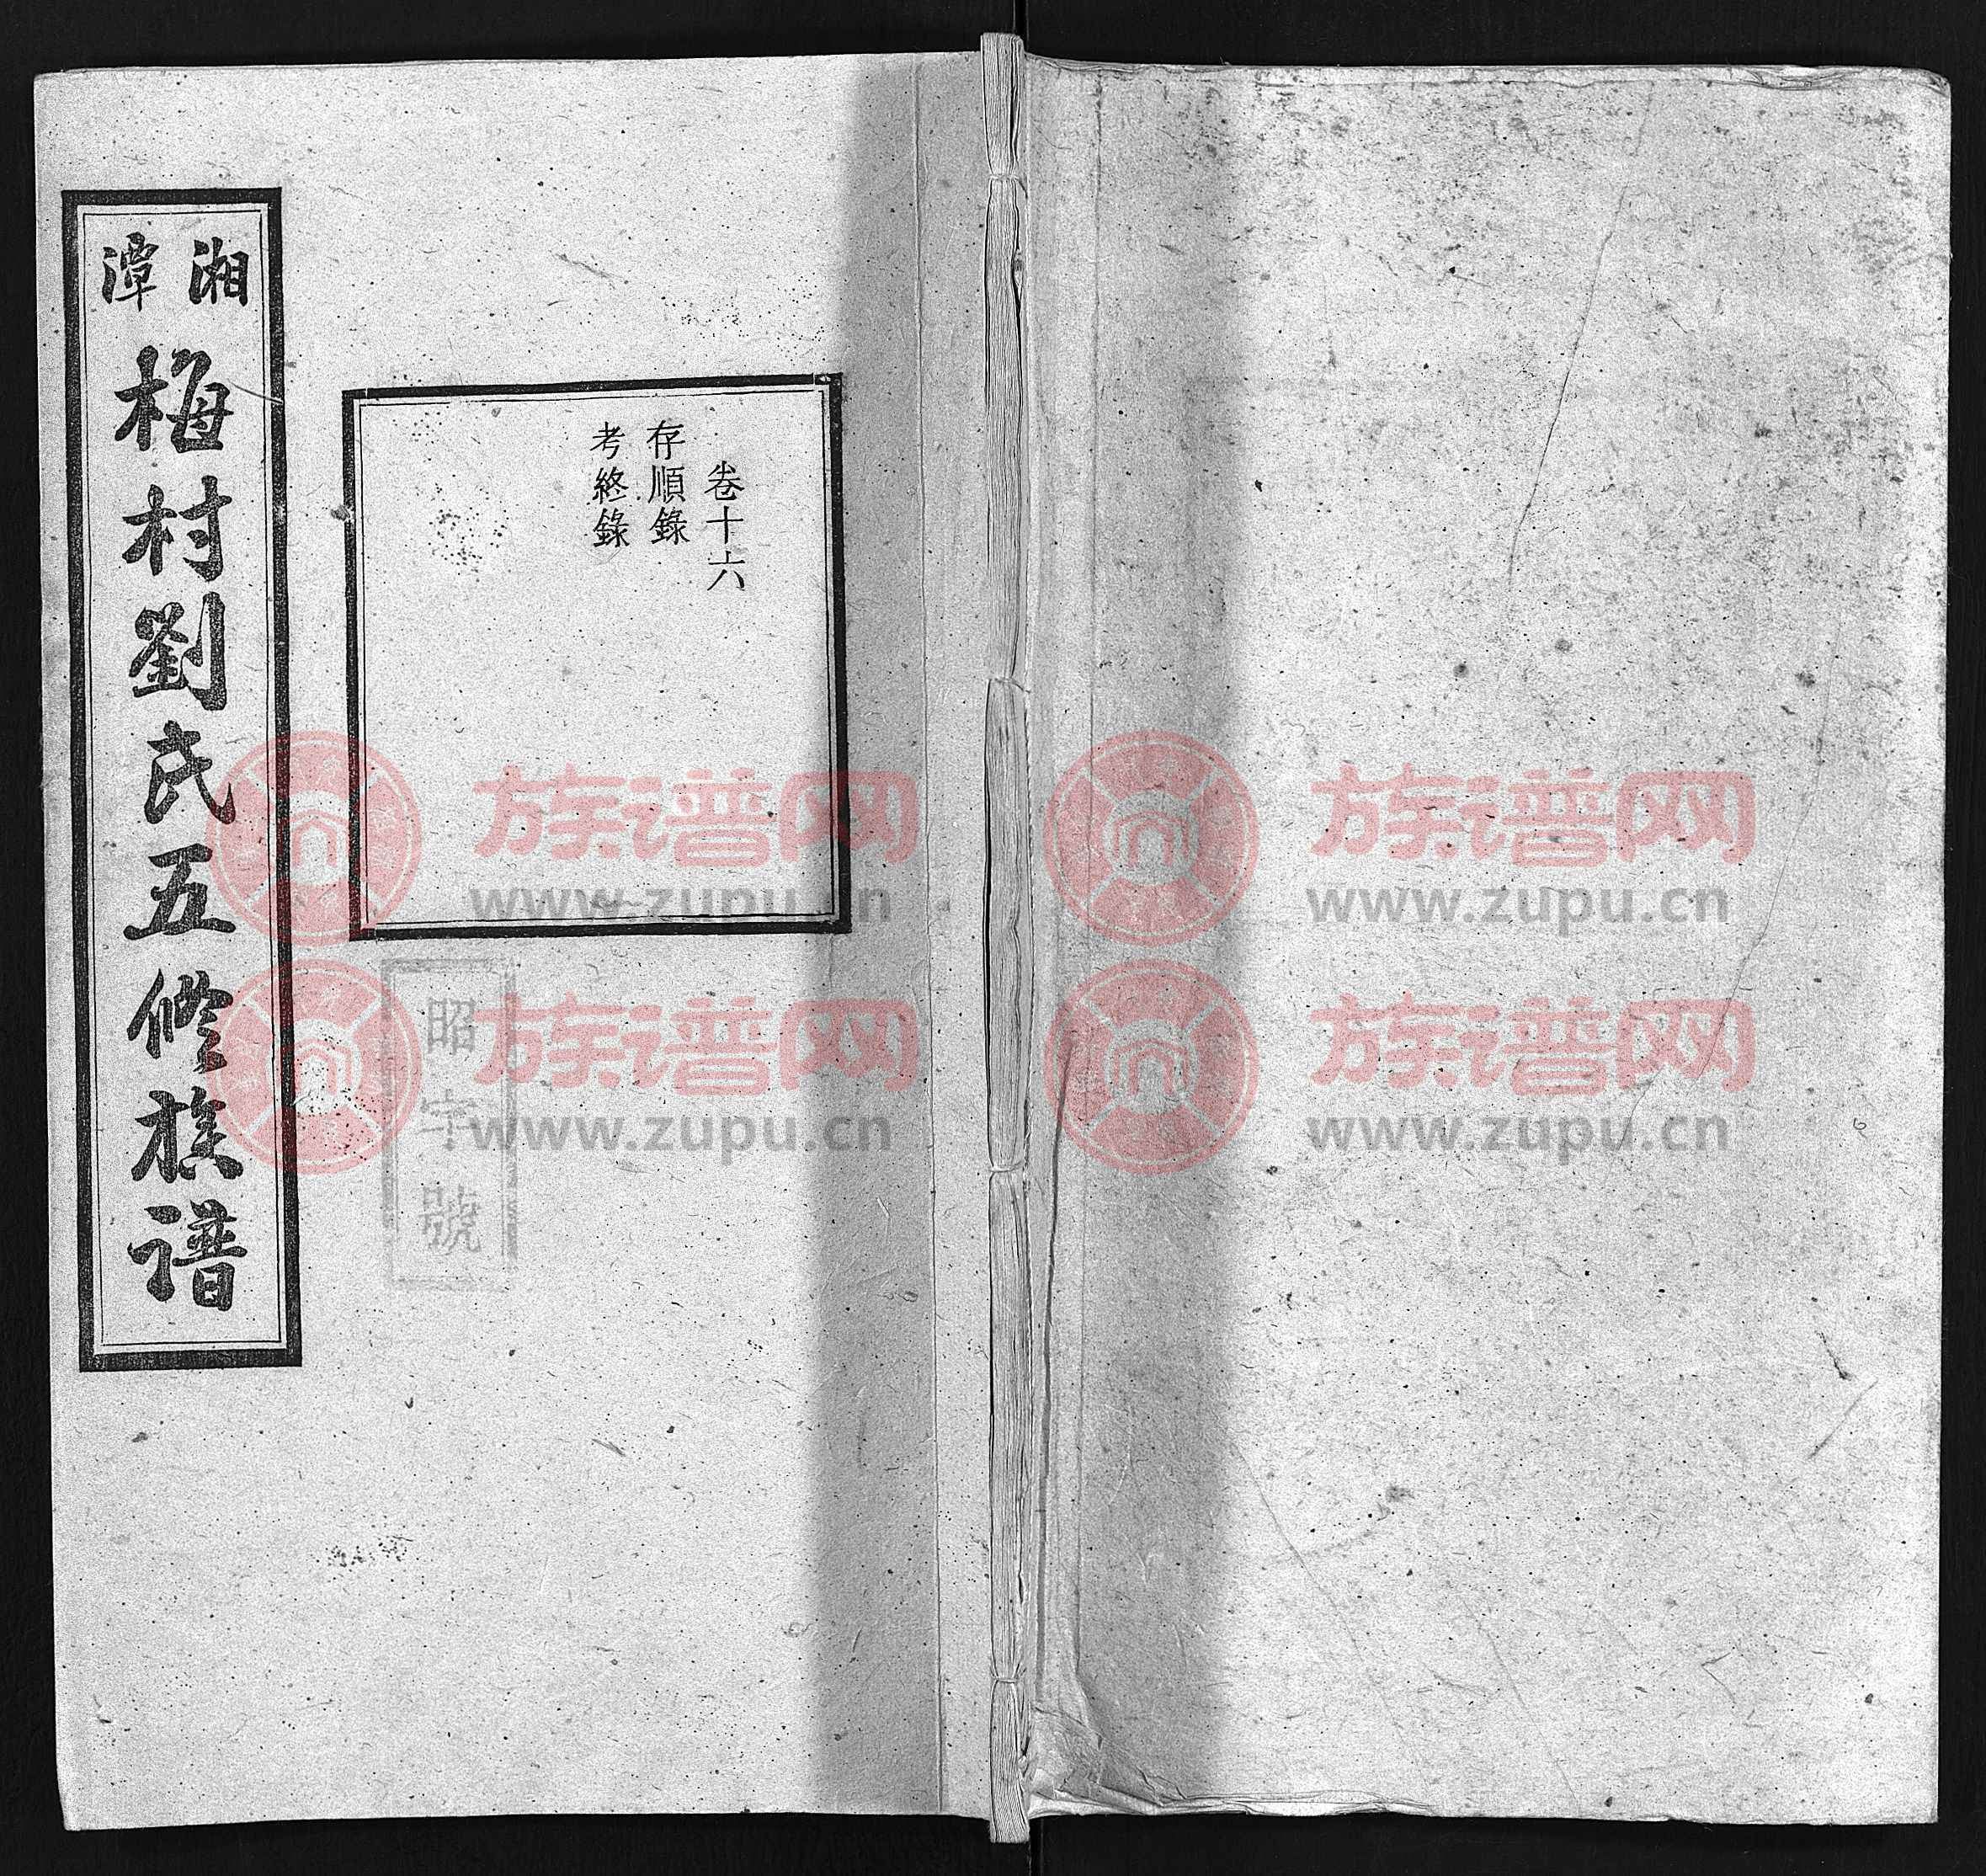 湘潭
梅村劉氏五修族譜
卷十六
存順錄
考終錄
昭字號
族谱网
www.zupu.cn
族谱网
www.zupu.cn
族谱网
www.zupu.cn
族谱网
www.zupu.cn